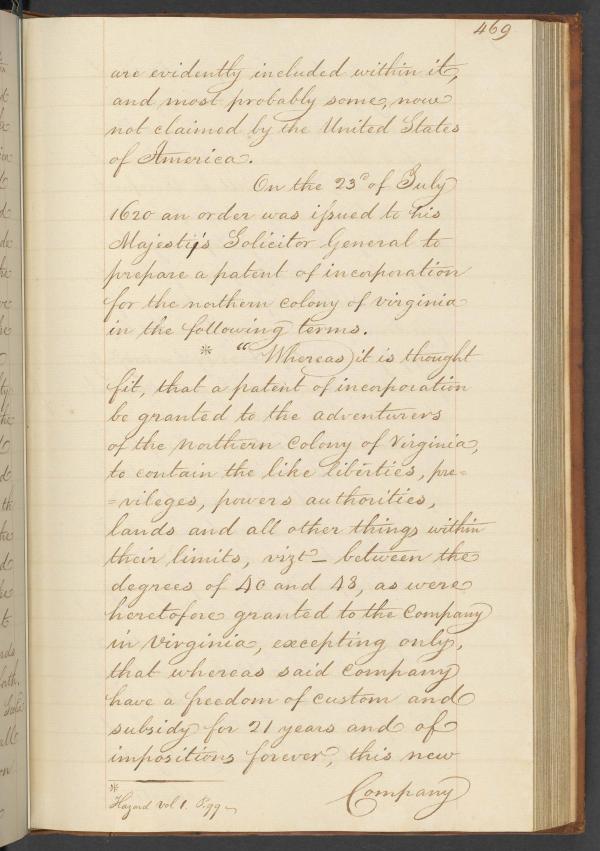 469
are evidently included within it,
and most probably some, now
not claimed by the United States
of America.
On the 23d of July
1620 an order was issued to his
Majesty's Solicitor General to
prepare a patent of incorporation
for the northern colony of virginia
in the following terms.
* "Whereas it is thought
fit, that a patent of incorporation
be granted to the adventurers
of the northern colony of Virginia,
to contain the like liberties, pre=
=vileges, powers authorities,
lands and all other things within
their limits, vizt_ between the
degrees of 40 and 48, as were
heretofore granted to the Company
in Virginia, excepting only,
that whereas said company
have a freedom of custom and
subsidy for 21 years and of
impositions forever, this new
Company
*
Hazard Vol 1. P. 99